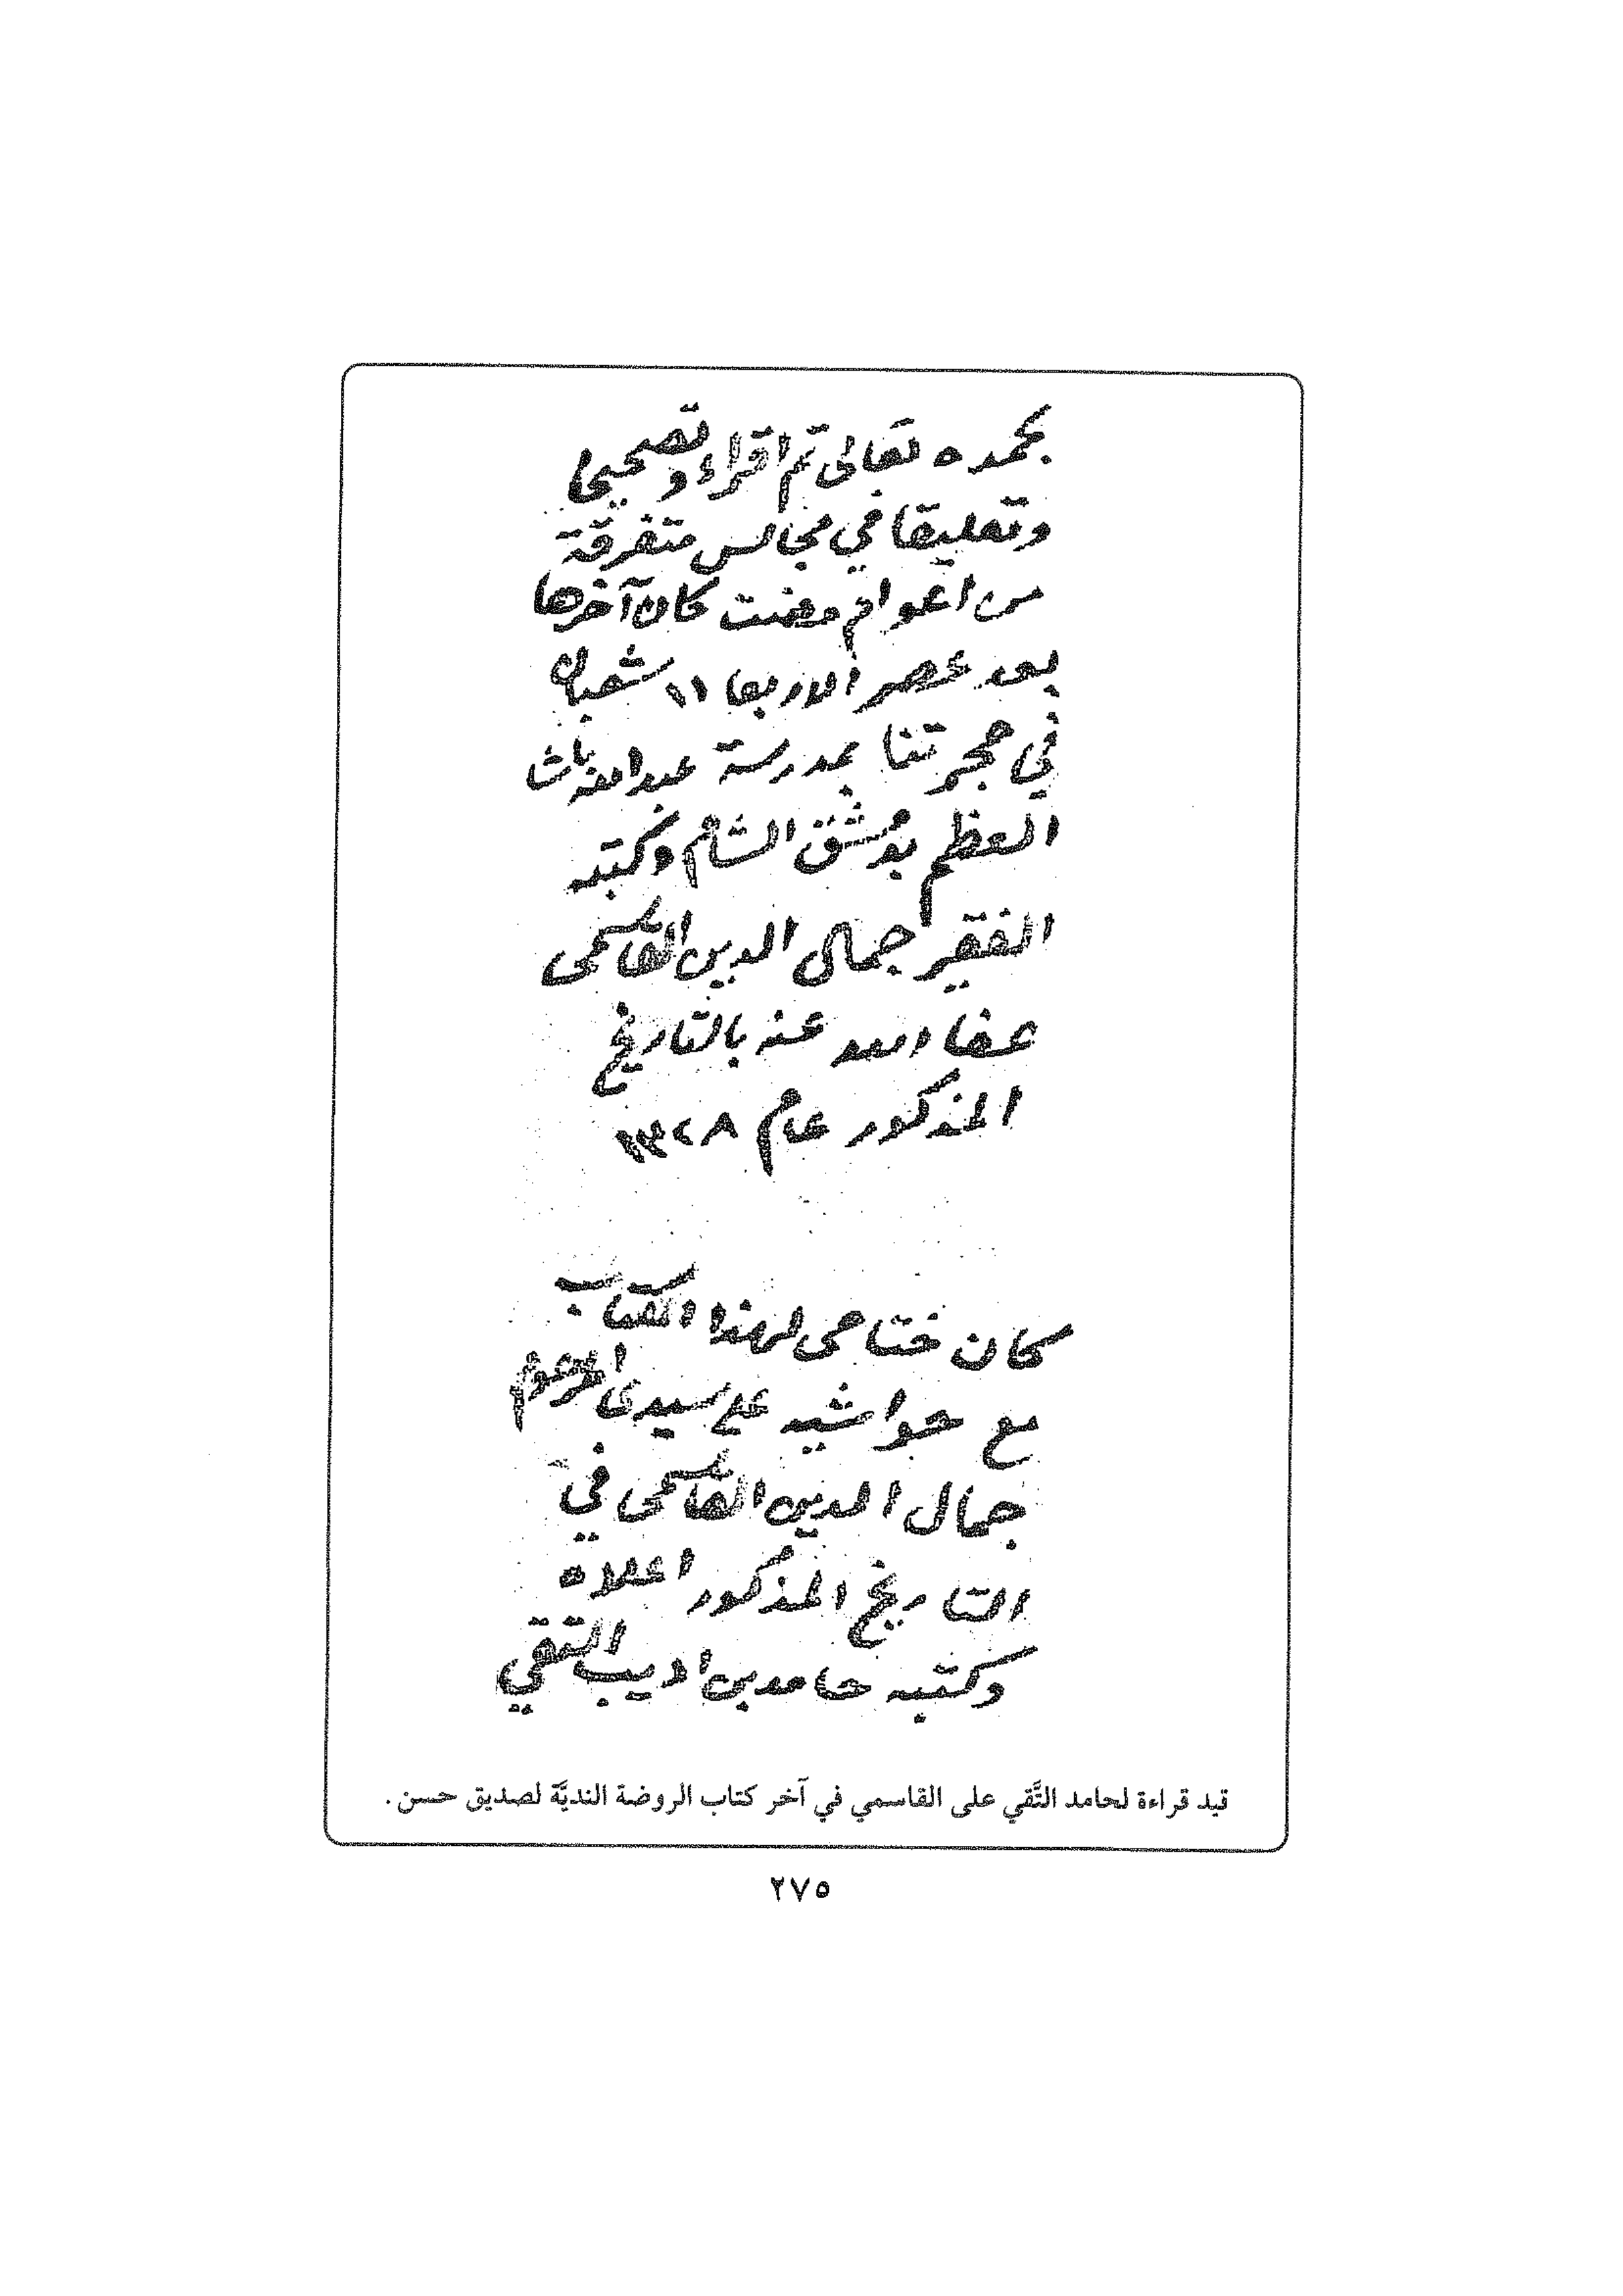 بحمده تعالى تم اقراء وتصحيحا
وتعليقا في مجالس متفرقة
من اعوام مضت كان آخرها
بعد عصر الاربعا ١١ شعبان
في حجرتنا بمدرسة عبد الله باشا
العظم بدمشق الشام وكتبه
الفقير جمال الدين القاسمي
عفا الله عنه بالتاريخ
المذكور عام ١٣٢٨
كان ختامي لهذا الكتاب
مع حواشيه على سيدي المرحوم
جمال الدين القاسمي في
التاريخ المذكور اعلاه
وكتبه حامد بن اديب التقي
قيد قراءة لحامد التَّقي على القاسمي في آخر كتاب الروضة النديَّة لصديق حسن .
٢٧٥